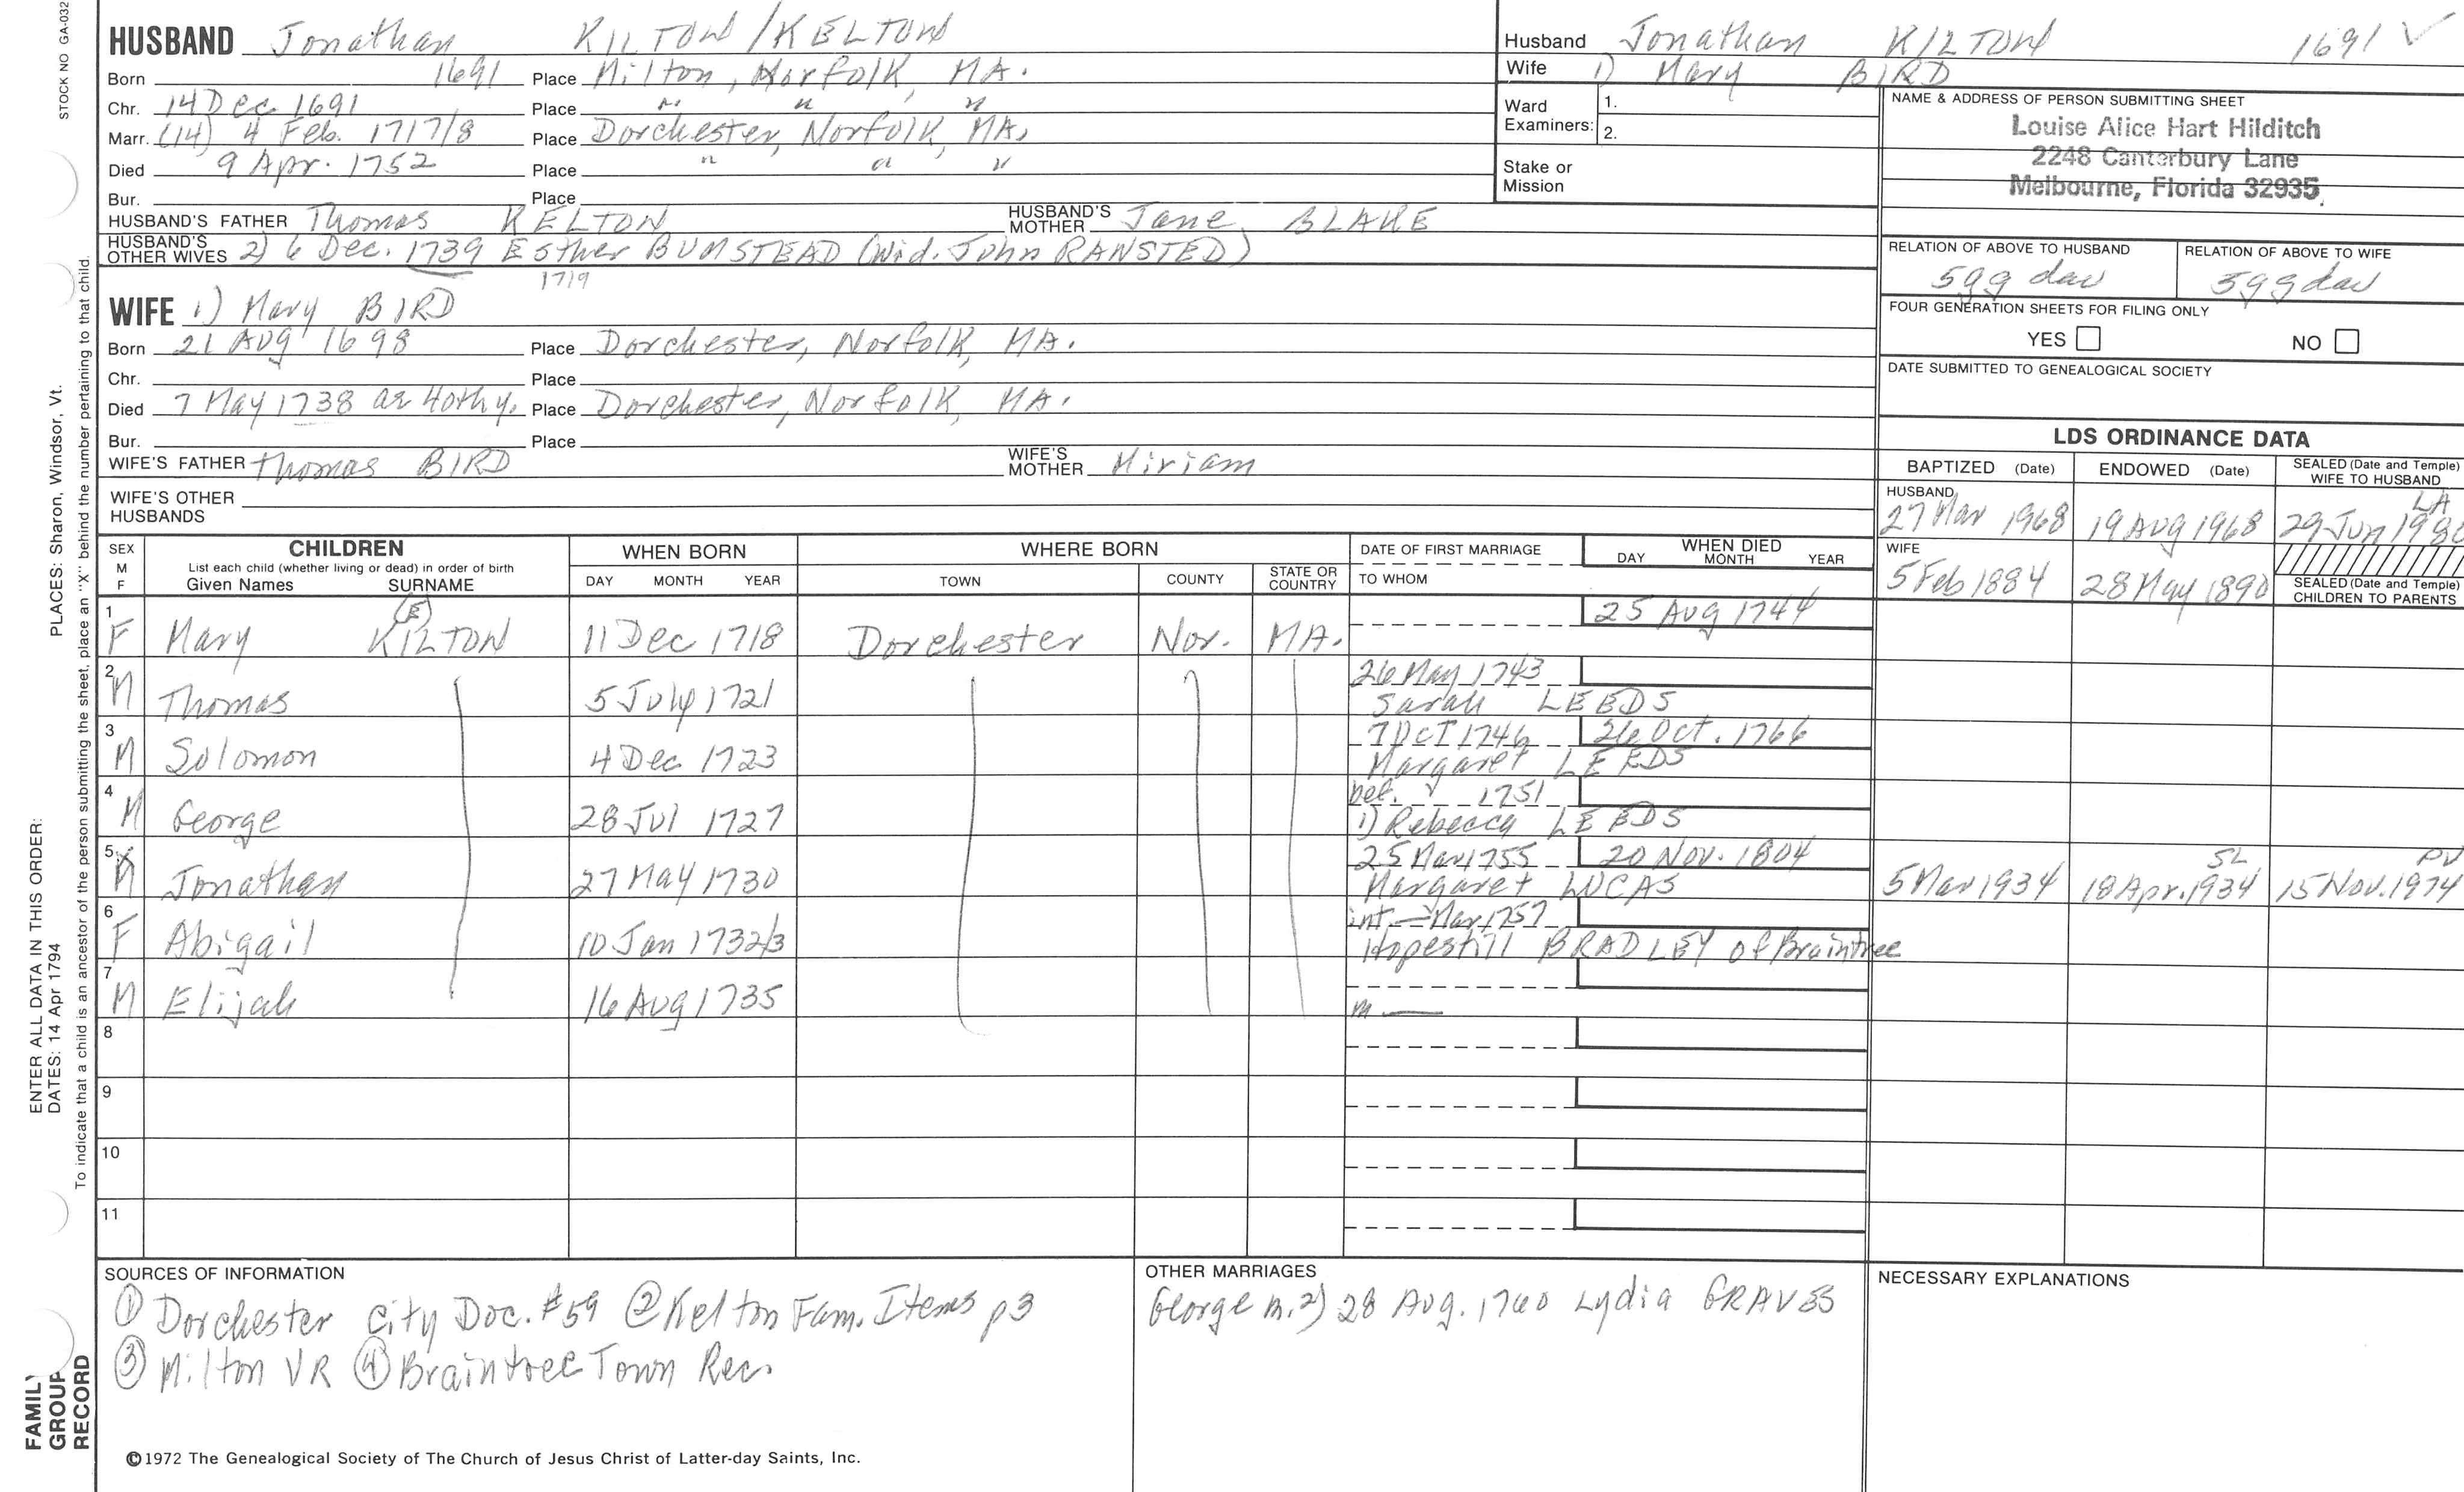 STOCK NO GA-032
HUSBAND Jonathan KILTON/KELTON
Born 1691 Place Milton, Norfolk, MA.
Chr. 14 Dec 1691 Place " " "
Marr. (14) 4 Feb. 1717/8 Place Dorchester, Norfolk, MA.
Died 9 Apr. 1752 Place " " "
Bur. Place
HUSBAND'S FATHER Thomas KELTON HUSBAND'S MOTHER Jane BLAKE
HUSBAND'S OTHER WIVES 2) 6 Dec. 1739 Esther BUMSTEAD (Wid. John RANSTED)
1719
WIFE 1) Mary BIRD
Born 21 AUG 1698 Place Dorchester, Norfolk, MA.
Chr. Place
Died 7 May 1738 ae 40th y. Place Dorchester, Norfolk, MA.
Bur. Place
WIFE'S FATHER Thomas BIRD WIFE'S MOTHER Miriam
WIFE'S OTHER HUSBANDS
Husband Jonathan KILTON 1691 ✓
Wife 1) Mary BIRD
Ward Examiners: 1.
2.
Stake or Mission
NAME & ADDRESS OF PERSON SUBMITTING SHEET
Louise Alice Hart Hilditch
2248 Canterbury Lane
Melbourne, Florida 32935
RELATION OF ABOVE TO HUSBAND RELATION OF ABOVE TO WIFE
5gg dau 5gg dau
FOUR GENERATION SHEETS FOR FILING ONLY
YES NO
DATE SUBMITTED TO GENEALOGICAL SOCIETY
LDS ORDINANCE DATA
BAPTIZED (Date) ENDOWED (Date) SEALED (Date and Temple) WIFE TO HUSBAND
HUSBAND LA
27 Mar 1968 19 Aug 1968 29 Jun 1980
WIFE
5 Feb 1884 28 May 1890 SEALED (Date and Temple) CHILDREN TO PARENTS
SEX M F CHILDREN WHEN BORN WHERE BORN DATE OF FIRST MARRIAGE WHEN DIED
List each child (whether living or dead) in order of birth DAY MONTH YEAR
Given Names SURNAME DAY MONTH YEAR TOWN COUNTY STATE OR COUNTRY TO WHOM
1 (E) 25 Aug 1744
F Mary KILTON 11 Dec 1718 Dorchester Nor. MA.
2 26 May 1743
M Thomas 5 July 1721 Sarah LEEDS
3 7 OCT 1746 26 Oct. 1766
M Solomon 4 Dec 1723 Margaret LEEDS
4 bef. 1751
M George 28 Jul 1727 1) Rebecca LEEDS
5 X 25 Mar 1755 20 Nov. 1804 SL PV
M Jonathan 27 May 1730 Margaret LUCAS 5 Mar 1934 18 Apr. 1934 15 Nov. 1974
6 int.— Mar 1757
F Abigail 10 Jan 1732/3 Hopestill BRADLEY of Braintree
7
M Elijah 16 Aug 1735 m —
8
9
10
11
SOURCES OF INFORMATION
① Dorchester City Doc. #59 ② Kelton Fam. Items p3
③ Milton VR ④ Braintree Town Rec.
OTHER MARRIAGES
George m. 2) 28 Aug. 1760 Lydia GRAVES
NECESSARY EXPLANATIONS
©1972 The Genealogical Society of The Church of Jesus Christ of Latter-day Saints, Inc.
PLACES: Sharon, Windsor, Vt.
To indicate that a child is an ancestor of the person submitting the sheet, place an "X" behind the number pertaining to that child.
ENTER ALL DATA IN THIS ORDER:
DATES: 14 Apr 1794
FAMILY GROUP RECORD